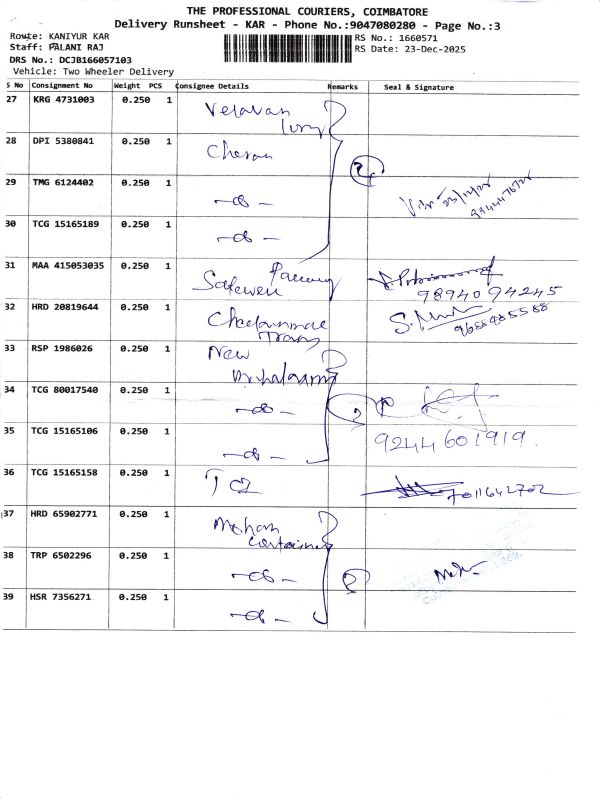 THE PROFESSIONAL COURIERS, COIMBATORE
Delivery Runsheet - KAR - Phone No.:9047080280 - Page No.:3
Route: KANIYUR KAR
RS No.: 1660571
Staff: PALANI RAJ
RS Date: 23-Dec-2025
DRS No.: DCJB166057103
Vehicle: Two Wheeler Delivery
S No Consignment No Weight PCS Consignee Details Remarks Seal & Signature
27 KRG 4731003 0.250 1 Velavan
28 DPI 5380841 0.250 1 Cheran
29 TMG 6124402 0.250 1 -do-
30 TCG 15165189 0.250 1 -do-
31 MAA 415053035 0.250 1
9894094245
32 HRD 20819644 0.250 1
Trans
9688485588
33 RSP 1986026 0.250 1 New
34 TCG 80017540 0.250 1 -do-
35 TCG 15165106 0.250 1 -do- 9244601919.
36 TCG 15165158 0.250 1 TCI 7011642702
37 HRD 65902771 0.250 1 Mohan
Container
38 TRP 6502296 0.250 1 -do-
39 HSR 7356271 0.250 1 -do-